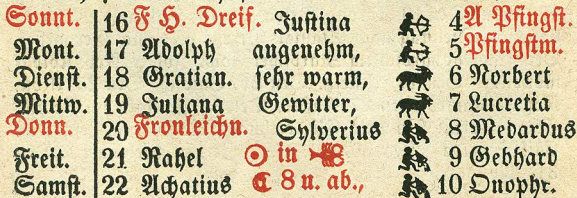 Sonnt. 16 F H. Dreif. Justina 4 A Pfingst.
Mont. 17 Adolph angenehm, 5 Pfingstm.
Dienst. 18 Gratian. sehr warm, 6 Norbert
Mittw. 19 Juliana Gewitter, 7 Lucretia
Donn. 20 Fronleichn. Sylverius 8 Medardus
Freit. 21 Rahel ☉ in 9 Gebhard
Samst. 22 Achatius ☾ 8 u. ab., 10 Onophr.